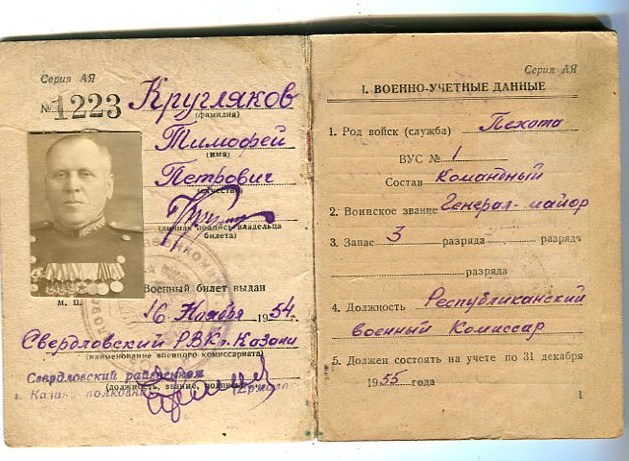 Серия АЯ
№ 1223 Кругляков
(фамилия)
Тимофей
(имя)
Петрович
(отчество)
(личная подпись владельца
билета)
М. П.
Военный билет выдан
16 Ноября 1954 г.
Свердловский РВК г. Казани
(наименование военного комиссариата)
Свердловский райвоенком
г. Казани полковник
(должность, звание,
Серия АЯ
I. ВОЕННО-УЧЕТНЫЕ ДАННЫЕ
1. Род войск (служба) Пехота
ВУС № 1
Состав командный
2. Воинское звание Генерал-майор
3. Запас 3 разряда разряда
разряда
4. Должность Республиканский
военный комиссар
5. Должен состоять на учете по 31 декабря
1955 года
1